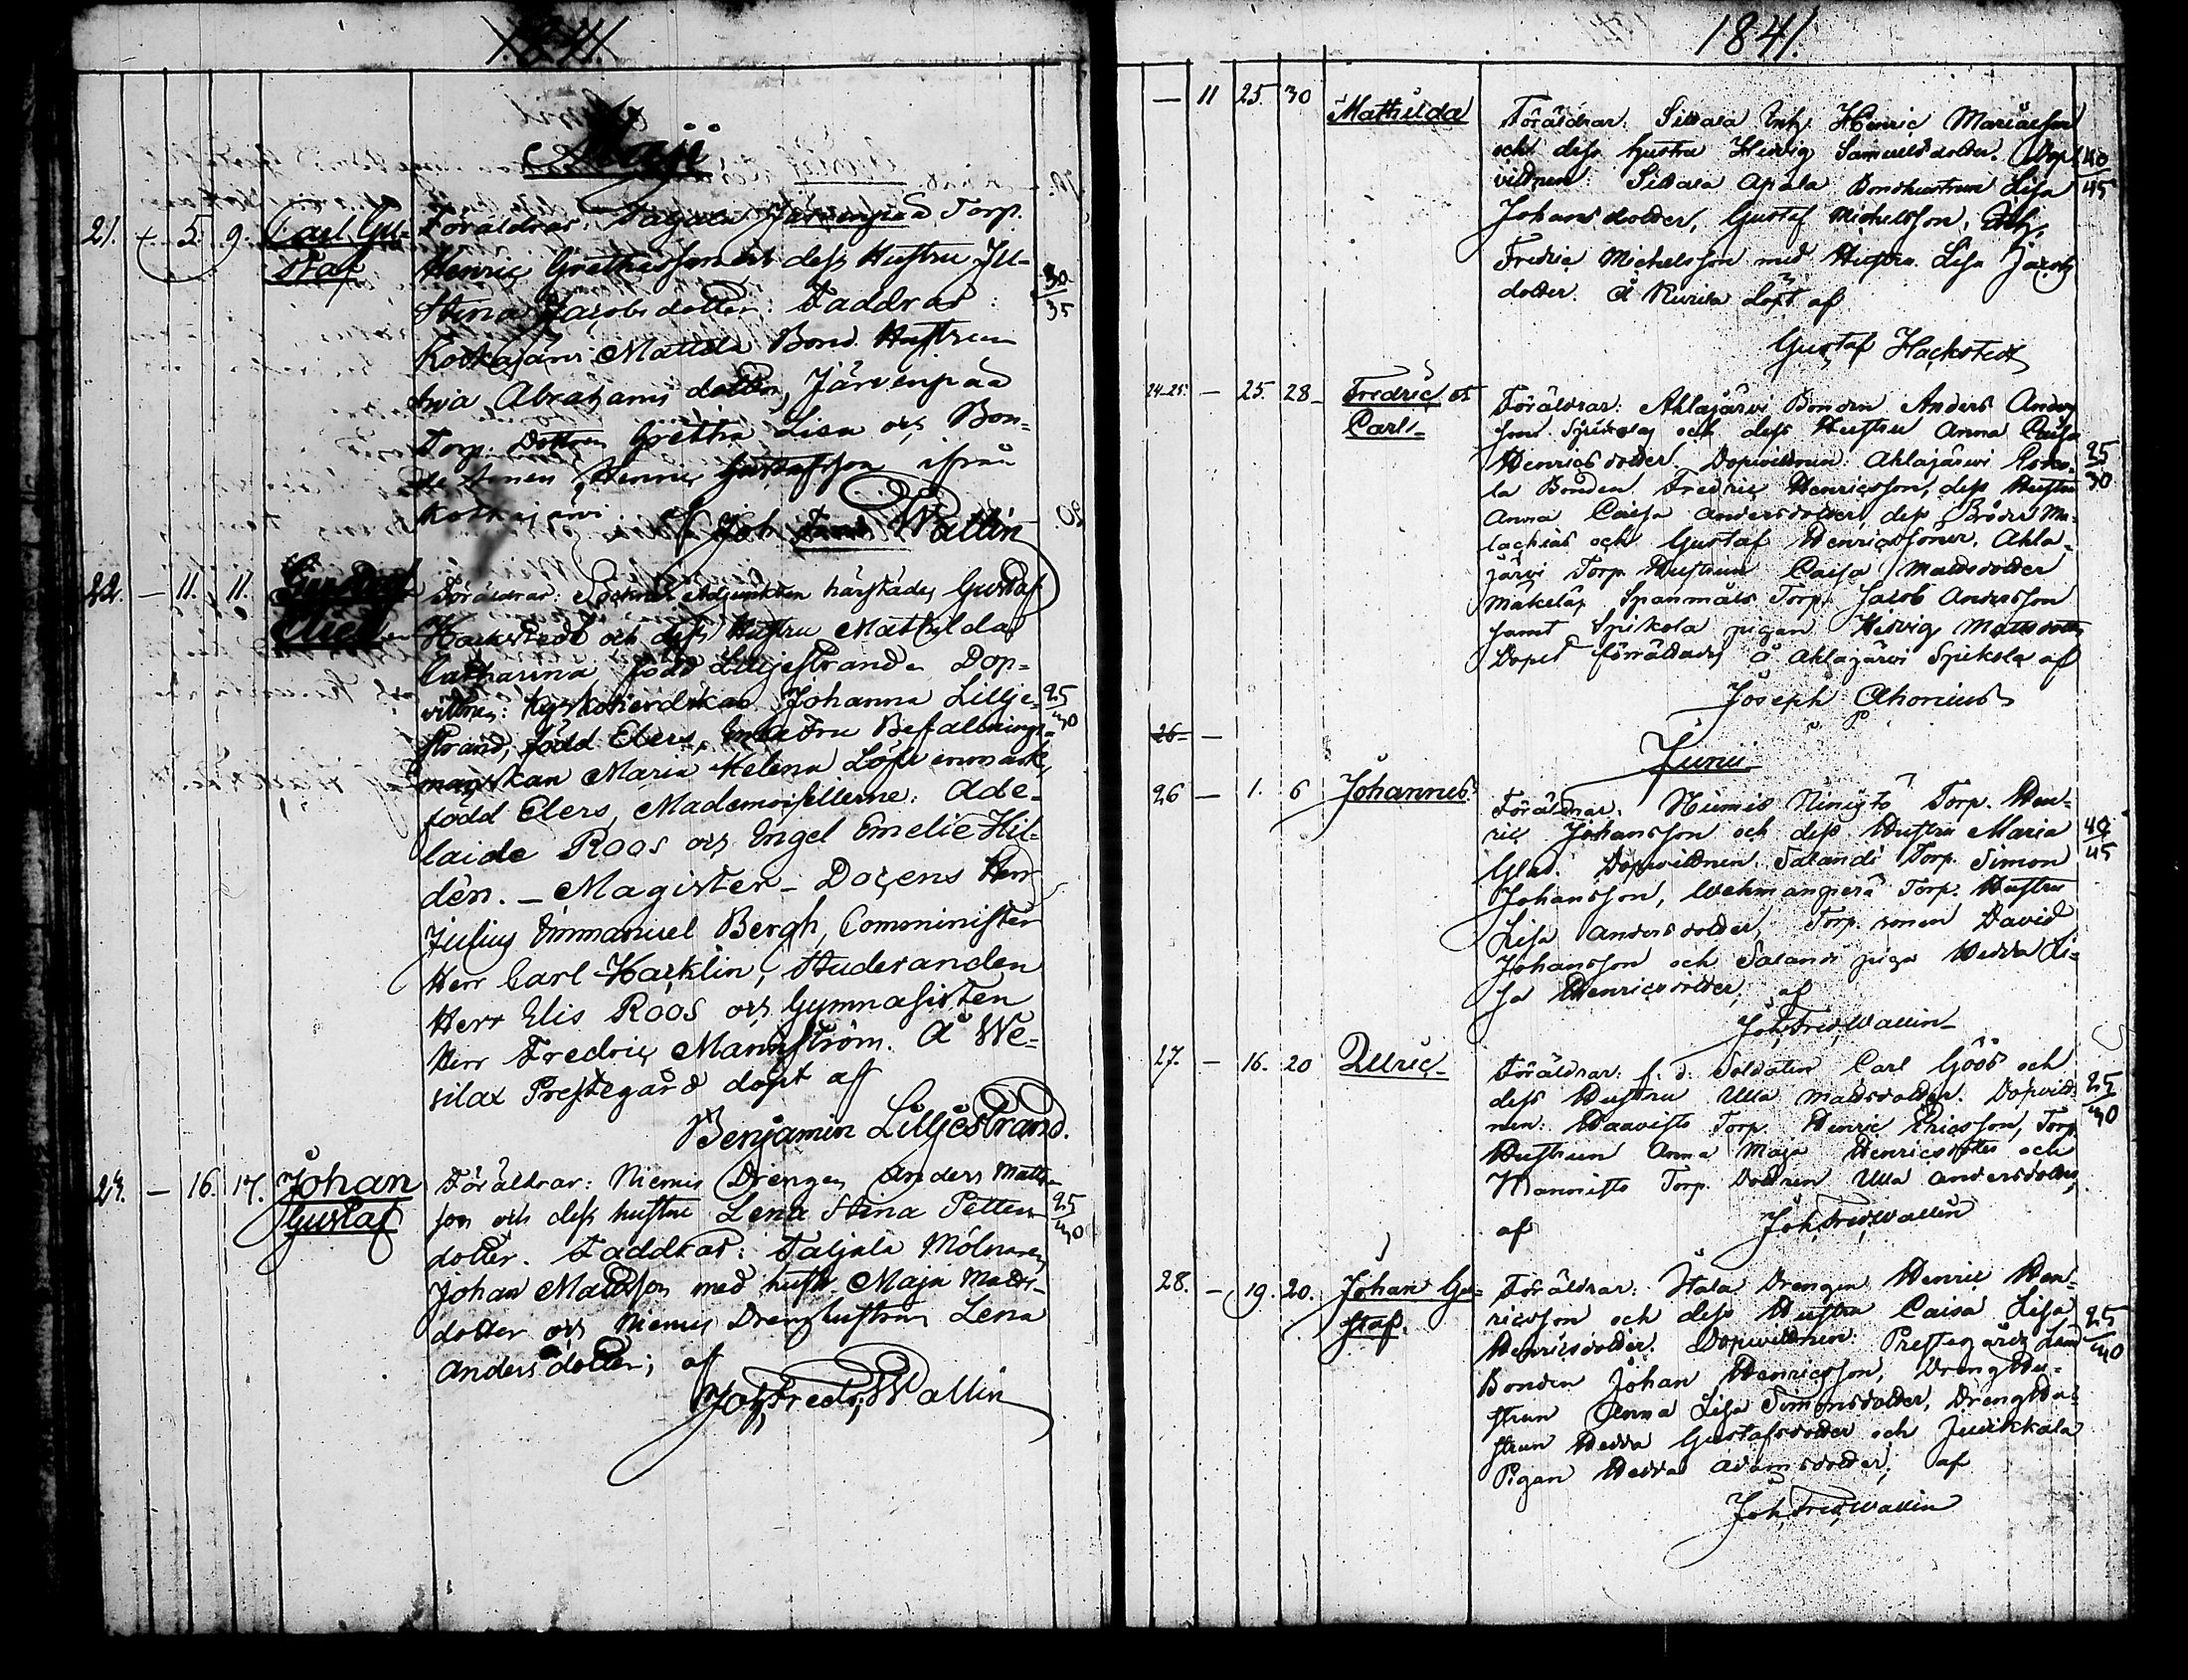 1841.
Maji
21. + 5. 9. Carl Gu-
staf
Föräldrar: Järvenpää Torp.
Henric och dess Hustru Ul-
Stina Jacobsdotter: Faddrar:
Mattila Bond Hustrun
Abrahams dotter, Järvenpää
Torp. Dottren Grettha Lisa och Bon-
de Sonen Henric Gustafsson ifrån
Koskajärvi. af Joh Fred Wallin
30
35
22. — 11. 11. Gustaf
Eliel
Föräldrar: Sockne Adjunkten härstädes Gustaf
Hackstedt och dess Hustru Mathilda
Catharina född Lilljestrand. Dop-
vittnen: Kyrkoherdskan Johanna Lillje-
strand, född Elers, Enke Fru Befallnings-
manskan Maria Helena
född Elers, Mademoisellerne: Ade-
laide Roos och Engel Emelie Hil-
dén. — Magister — Doçens Herr
Julius Emmanuel Bergh, Comminister
Herr Carl Hacklin, Studeranden
Herr Elis Roos och Gymnasisten
Herr Fredric Mannström. Å We-
silax Prestegård döpt af
Benjamin Lilljestrand.
25
30
23. — 16. 17. Johan
Gustaf
Föräldrar: Niemis Drengen Anders Matts-
son och dess hustru Lena Stina Petters
dotter. Faddrar: Taljala Mölnaren
Johan Mattsson med hustr. Maja Matts-
dotter och Niemis Dreng hustrun Lena
Anders dotter; af
Joh, Fredr, Wallin
25
30
1841.
— 11 25. 30 Mathilda
Föräldrar: Sillala Inh. Henric
och dess hustru Hedvig Samuelsdotter. Dop-
vittnen: Sillala Apala Bondhustrun Lisa
Johansdotter, Gustaf Michelsson, Inh.
Fredric Michelsson med Hustru Lisa Jacobs
dotter. Å döpt af
Gustaf Hackstedt
40
45
24-25. — 25. 28 — Fredric et
Carl-
Föräldrar: Ahlajärvi Bonden Anders Anders
son Spikola och dess Hustru Anna Caisa
Henricsdotter. Dopvittnen: Ahlajärvi
la Bonden Fredric Henricsson, dess Hustru
Anna Caisa Andersdotter, dess Bröder Ma-
lachias och Gustaf Henricssöner, Ahla-
järvi Torp Hustrun Caisa Mattsdotter
Mäkelä, Spanmåls Torp. Jacob Andersson
samt Spikola pigan Hedvig Mattsdotter
Dopet förrättades å Ahlajärvi Spikola af
Joseph Ahonius
25
30
26- —
Junii
26 — 1. 6 Johannes.
Föräldrar: Niemis Torp. Hen-
ric Johansson och dess Hustru Maria
Glad. Dopvittnen: Salandi Torp. Simon
Johansson, Torp. Hustru
Lisa Andersdotter, Torp. sonen David
Johansson och Salandi piga Hedda Li-
sa Henricsdotter; af
Joh, Fred, Wallin
40
45
27. — 16. 20 Ulric-
Föräldrar: f. d. Soldaten Carl Göös och
dess Hustru Ulla Mattsdotter. Dopvitt-
nen: Haavisto Torp. Henric Ericsson, Torp.
Hustrun Anna Maja Henricsdotter och
Mannisto Torp. Dottren Ulla Andersdotter,
af Joh, Fred, Wallin
25
30
28. — 19. 20. Johan Gu-
staf.
Föräldrar: Hala Drengen Henric Hen-
ricsson och dess Hustru Caisa Lisa
Henricsdotter. Dopvittnen: Prestegårds
Bonden Johan Henricsson, Dreng Hu-
strun Anna Lisa Simonsdotter, Dreng Hu-
strun Hedda Gustafsdotter och Juckkala
Pigan Hedda Adamsdotter; af
Joh, Fred, Wallin
25
30